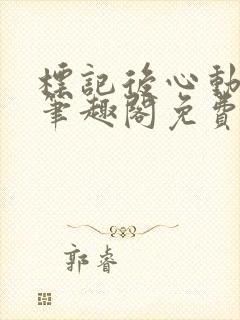 標記後心動
筆趣閣免費
郭睿